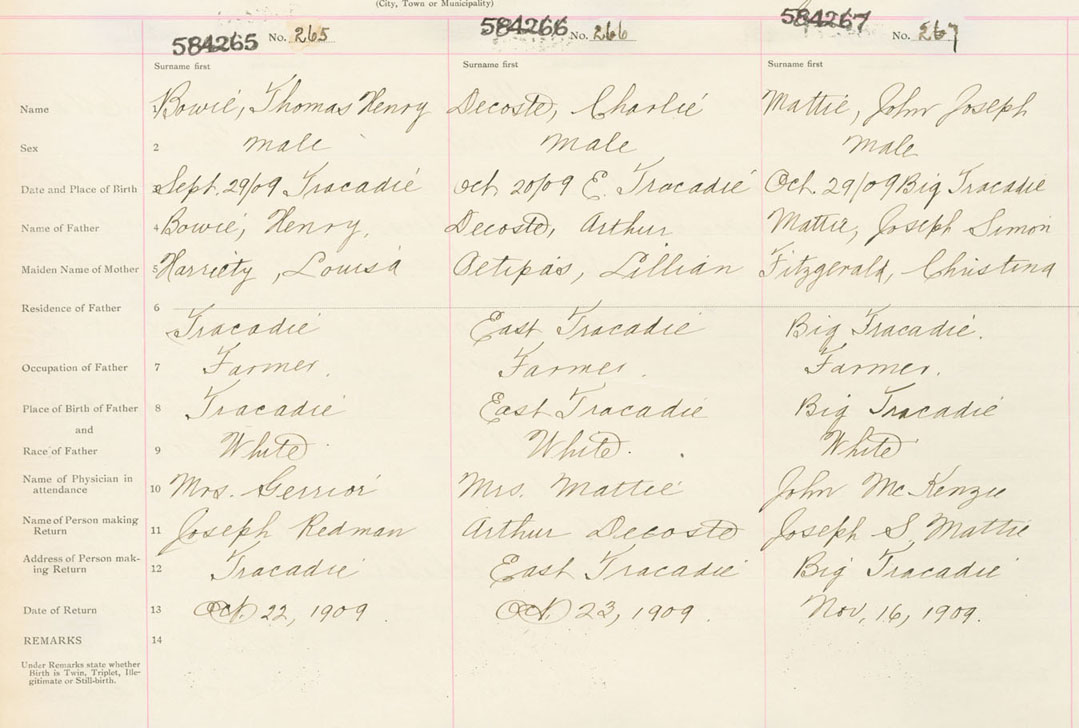 (City, Town or Municipality)
584265 No. 265 584266 No. 266 584267 No. 267
Surname first Surname first Surname first
Name 1 Bowie, Thomas Henry Decoste, Charlie Mattie, John Joseph
Sex 2 male Male Male
Date and Place of Birth 3 Sept. 29/09 Tracadie Oct 20/09 E. Tracadie Oct. 29/09 Big Tracadie
Name of Father 4 Bowie, Henry, Decoste, Arthur Mattie, Joseph Simon
Maiden Name of Mother 5 Harriety, Louisa Petipas, Lillian Fitzgerald, Christina
Residence of Father 6
Tracadie East Tracadie Big Tracadie.
Occupation of Father 7 Farmer. Farmer. Farmer.
Place of Birth of Father 8 Tracadie East Tracadie Big Tracadie
and
Race of Father 9 White White. White
Name of Physician in
attendance 10 Mrs. Gerrior Mrs. Mattie John McKenzie
Name of Person making
Return 11 Joseph Redman Arthur Decoste Joseph S. Mattie
Address of Person mak-
ing Return 12 Tracadie East Tracadie Big Tracadie
Date of Return 13 Oct. 22, 1909. Oct. 23, 1909. Nov, 16, 1909.
REMARKS 14
Under Remarks state whether
Birth is Twin, Triplet, Ille-
gitimate or Still-birth.